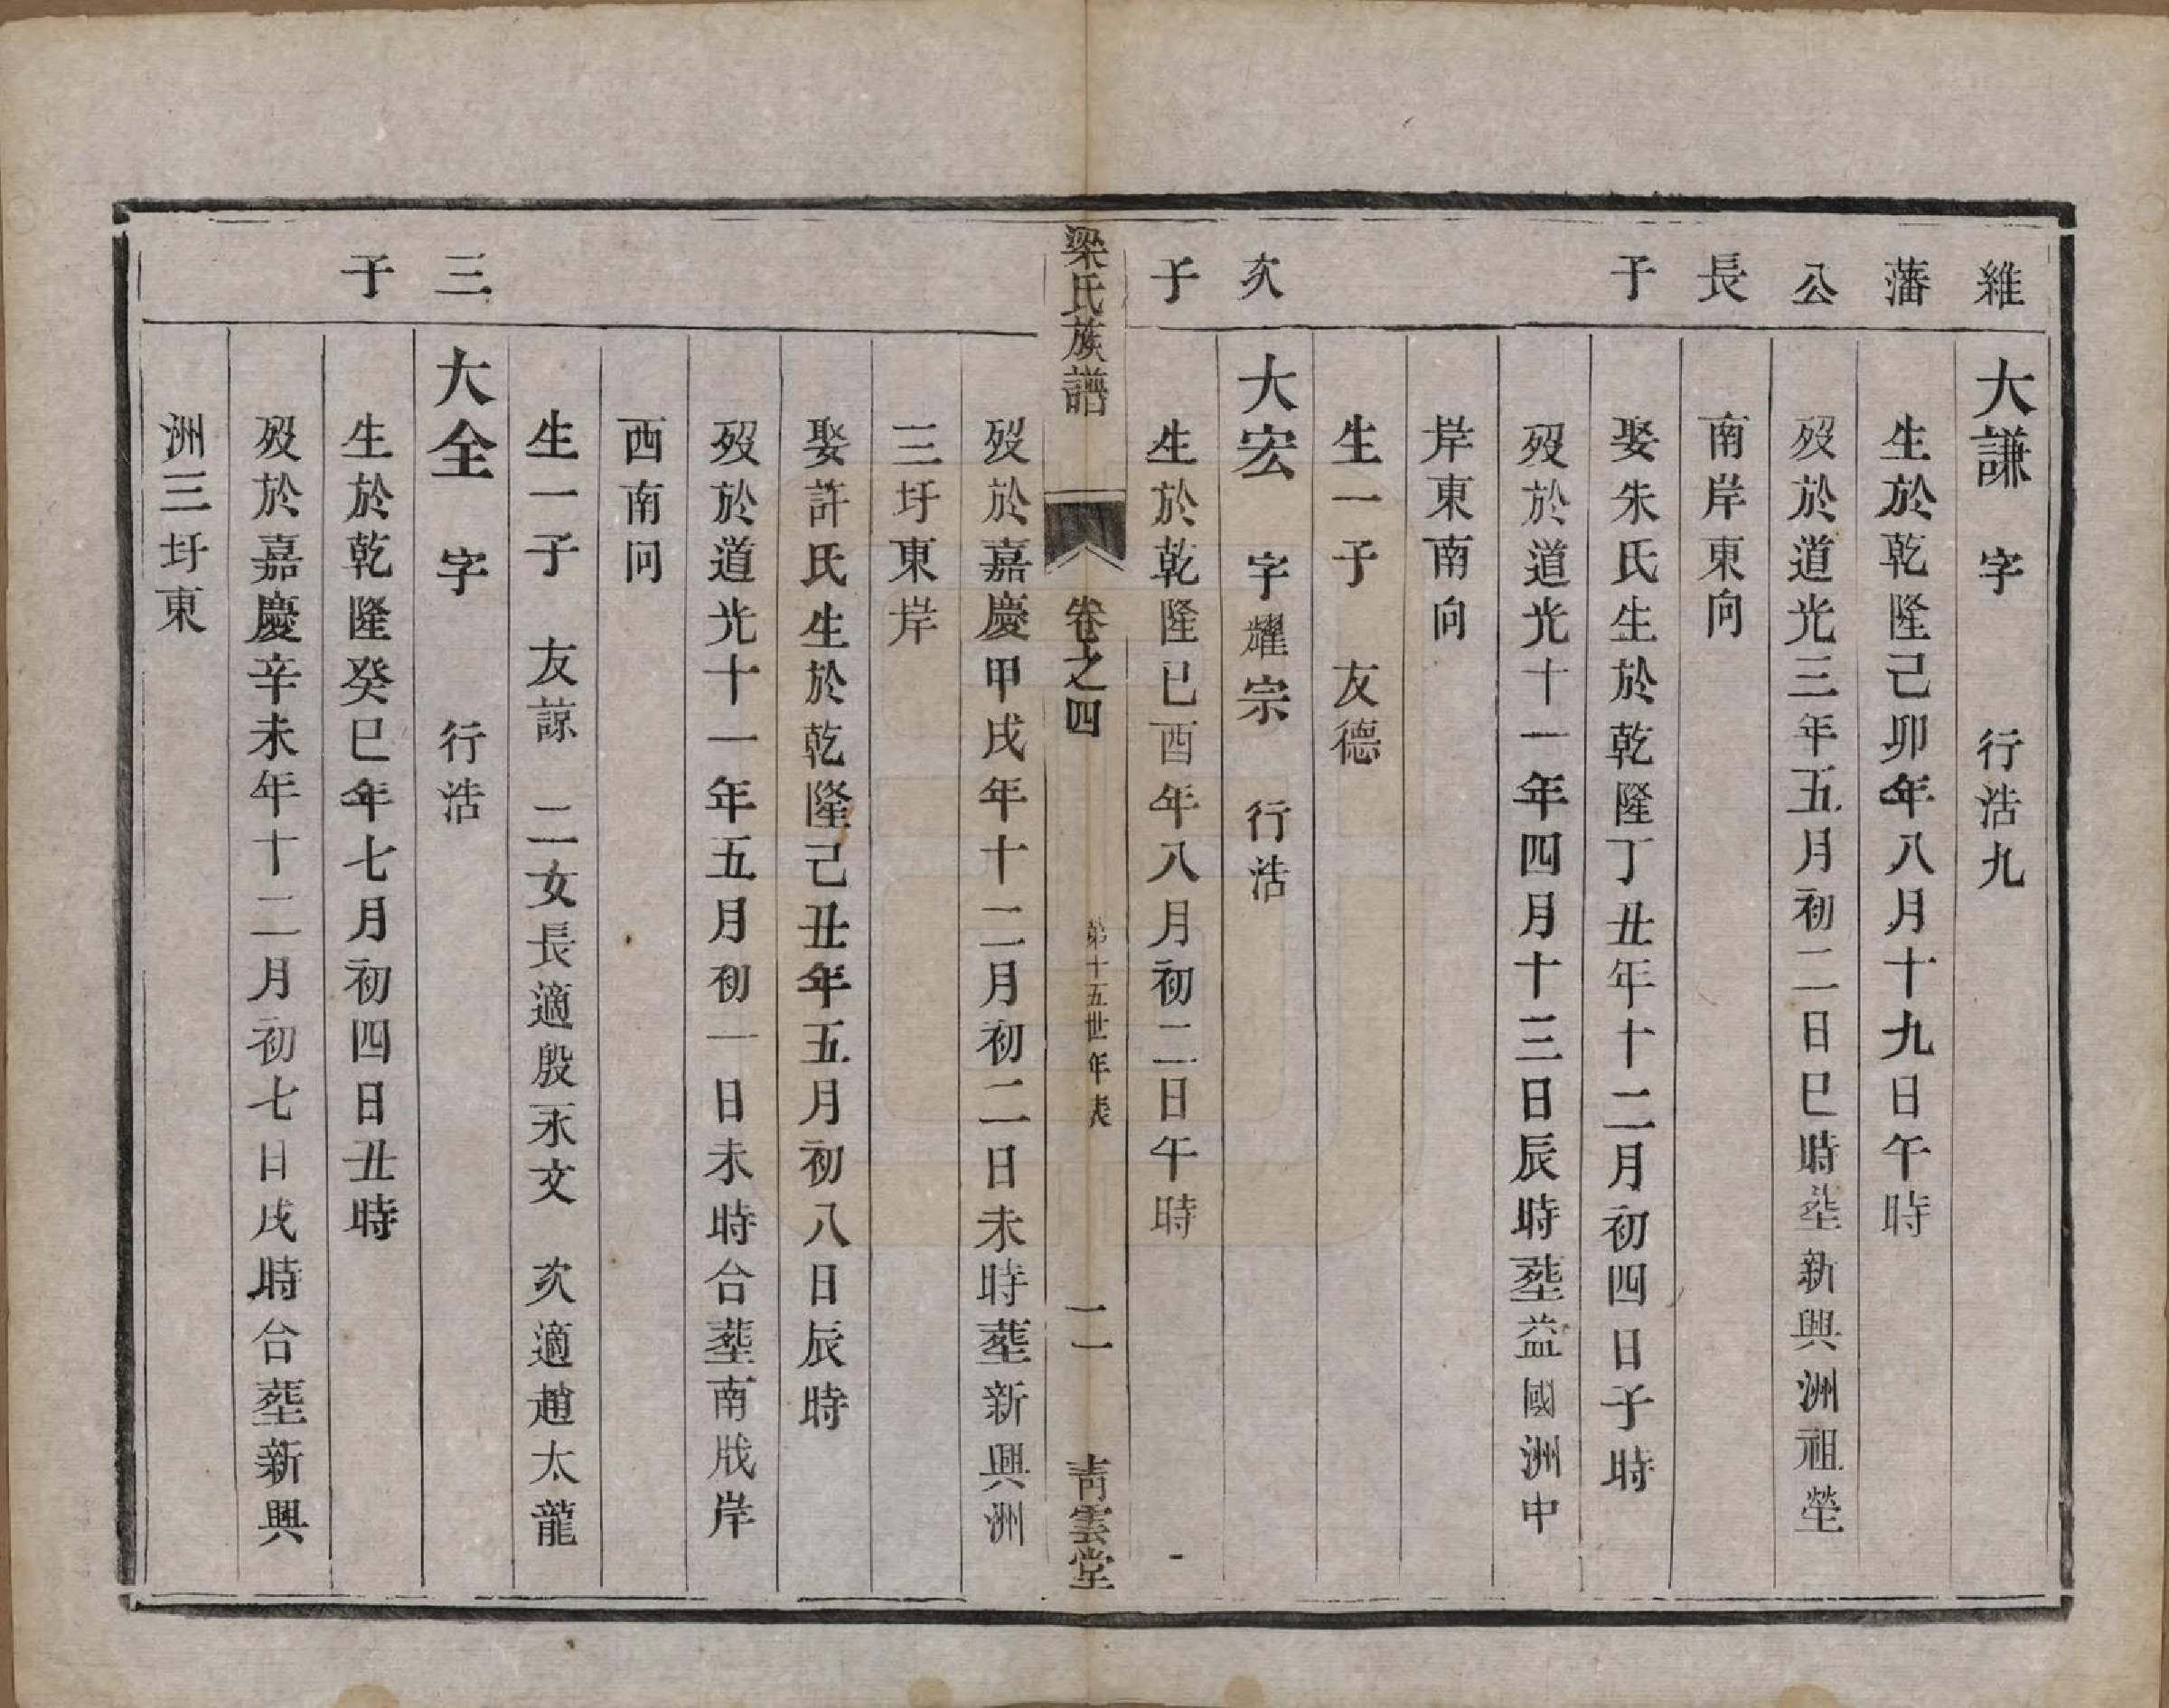 維藩公長子
大謙 字 行浩九
生於乾隆己卯年八月十九日午時
歿於道光三年五月初二日巳時塟新興洲祖塋
南岸東向
娶朱氏生於乾隆丁丑年十二月初四日子時
歿於道光十一年四月十三日辰時塟益國洲中
岸東南向
生一子 友德
次子
大宏 字耀宗 行浩
生於乾隆已酉年八月初二日午時
梁氏族譜 卷之四 第十五世年表 二 青雲堂
歿於嘉慶甲戌年十二月初二日未時塟新興洲
三圩東岸
娶許氏生於乾隆己丑年五月初八日辰時
歿於道光十一年五月初一日未時合塟南戙岸
西南向
生一子 友諒 二女長適殷永文 次適趙太龍
三子
大全 字 行浩
生於乾隆癸巳年七月初四日丑時
歿於嘉慶辛未年十二月初七日戌時合塟新興
洲三圩東